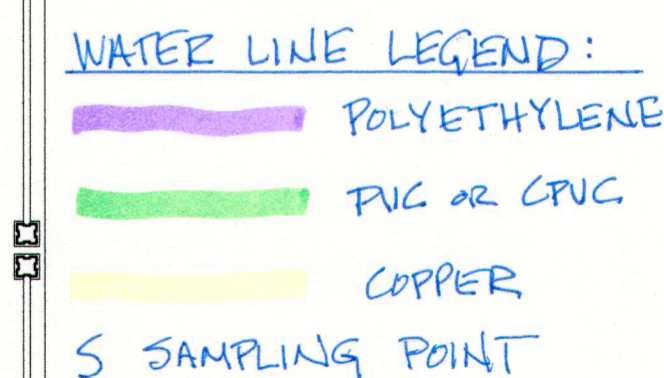 WATER LINE LEGEND:
POLYETHYLENE
PVC OR CPVC
COPPER
S SAMPLING POINT